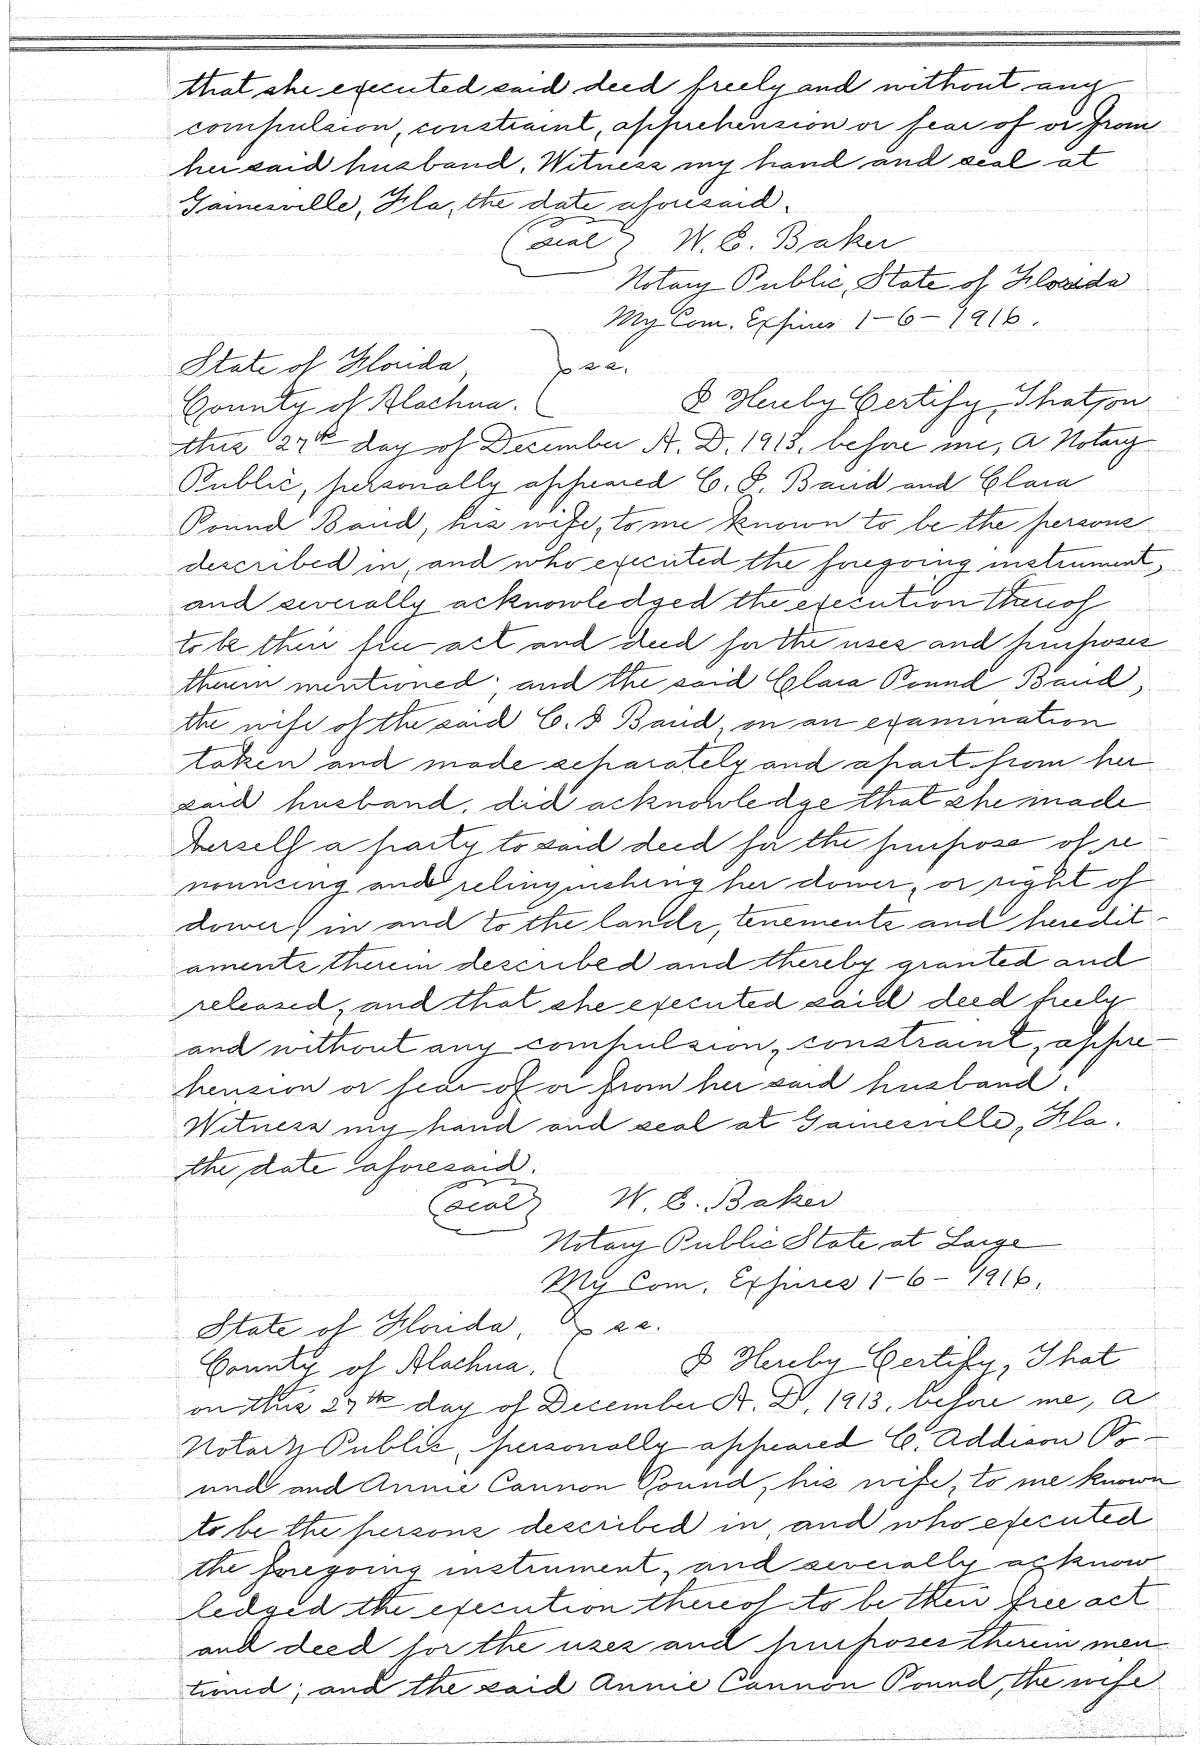 that she executed said deed freely and without any
compulsion, constraint, apprehension or fear of or from
her said husband. Witness my hand and seal at
Gainesville, Fla, the date aforesaid.
(seal) W. E. Baker
Notary Public, State of Florida
My Com. Expires 1-6-1916.
State of Florida, } s.s.
County of Alachua. I Hereby Certify, That, on
this 27th day of December A. D. 1913. before me, a Notary
Public, personally appeared C. I. Baird and Clara
Pound Baird, his wife, to me known to be the persons
described in, and who executed the foregoing instrument,
and severally acknowledged the execution thereof
to be their free act and deed for the uses and purposes
therein mentioned; and the said Clara Pound Baird,
the wife of the said C. I Baird, on an examination
taken and made separately and apart from her
said husband. did acknowledge that she made
herself a party to said deed for the purpose of re-
nouncing and relinquishing her dower, or right of
dower, in and to the lands, tenements and heredit-
aments, therein described and thereby granted and
released, and that she executed said deed freely
and without any compulsion, constraint, appre-
hension or fear of or from her said husband.
Witness my hand and seal at Gainesville, Fla.
the date aforesaid.
(seal) W. E. Baker
Notary Public State at Large
My Com. Expires 1-6-1916.
State of Florida, } s.s.
County of Alachua. I Hereby Certify, That
on this 27th day of December A. D. 1913. before me, a
Notary Public, personally appeared C. Addison Po-
und and Annie Cannon Pound, his wife, to me known
to be the persons described in, and who executed
the foregoing instrument, and severally acknow
ledged the execution thereof to be their free act
and deed for the uses and purposes therein men
tioned; and the said Annie Cannon Pound, the wife